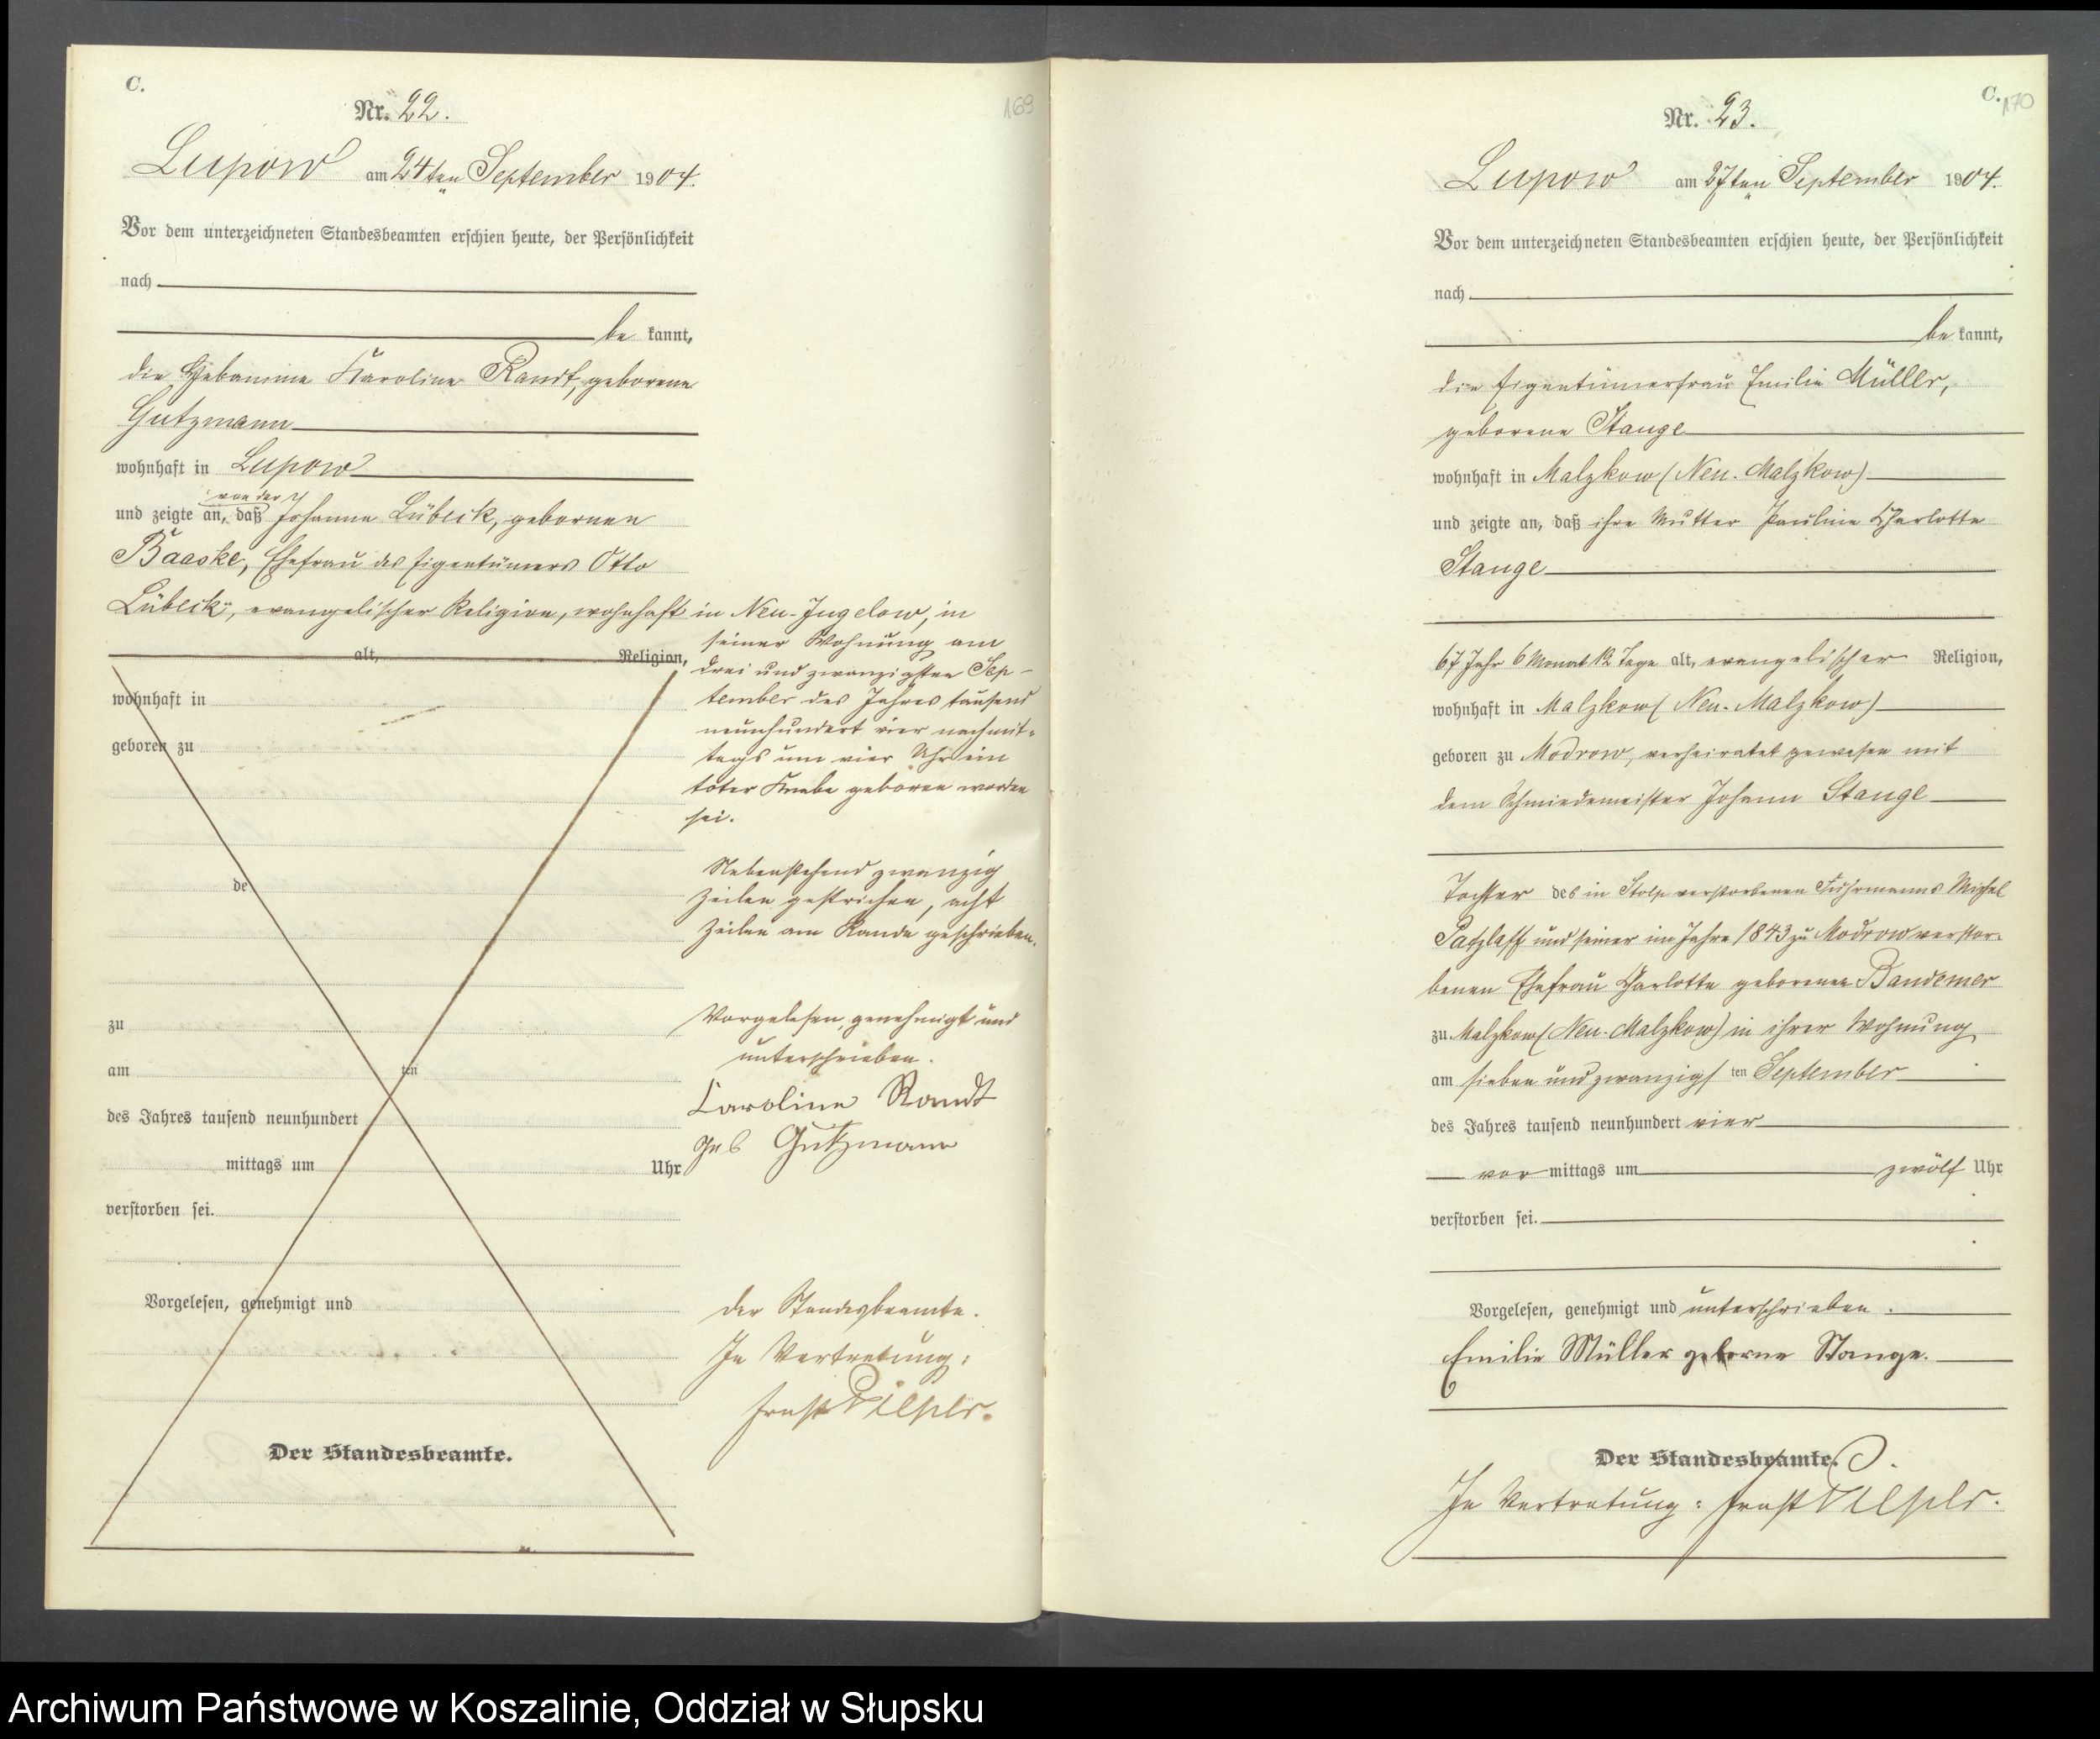 C.
169
Nr. 22.
Lupow am 24ten September 1904.
Vor dem unterzeichneten Standesbeamten erschien heute, der Persönlichkeit
nach
be kannt,
die Hebamme Karoline Randt, geborene
Gutzmann
wohnhaft in Lupow
von der
und zeigte an, daß Johanna Lübeck, gebornen
Baaske, Ehefrau des Eigentümers Otto
Lübeck, evangelischer Religion, wohnhaft in Neu-Jugelow, in
seiner Wohnung am
alt, Religion,
drei und zwanzigsten Sep-
tember des Jahres tausend
wohnhaft in
neunhundert vier nachmit-
geboren zu
tags um vier Uhr ein
toter Knabe geboren worden
sei.
Nebenstehend zwanzig
de
Zeilen gestrichen, acht
Zeilen am Rande geschrieben.
zu
Vorgelesen, genehmigt und
unterschrieben.
am ten
Caroline Randt
des Jahres tausend neunhundert
geb Gutzmann
mittags um Uhr
verstorben sei.
Vorgelesen, genehmigt und
Der Standesbeamte.
In Vertretung:
Ernst
Der Standesbeamte.
C.
170
Nr. 23.
Lupow am 27ten September 1904.
Vor dem unterzeichneten Standesbeamten erschien heute, der Persönlichkeit
nach
be kannt,
die Eigentümerfrau Emilie Müller,
geborene Stange
wohnhaft in Malzkow (Neu-Malzkow)
und zeigte an, daß ihre Mutter Pauline Charlotte
Stange
67 Jahr 6 Monat 12 Tage alt, evangelischer Religion,
wohnhaft in Malzkow (Neu-Malzkow)
geboren zu Modrow, verheiratet gewesen mit
dem Schmiedemeister Johann Stange
Tochter des in Stolp verstorbenen Fuhrmanns Michel
Patzlaff und seiner im Jahre 1843 zu Modrow verstor-
benen Ehefrau Charlotte geborenen Bandemer
zu Malzkow (Neu-Malzkow) in ihrer Wohnung
am sieben und zwanzigs ten September
des Jahres tausend neunhundert vier
vor mittags um zwölf Uhr
verstorben sei.
Vorgelesen, genehmigt und unterschrieben.
Emilie Müller geborne Stange.
Der Standesbeamte.
In Vertretung: Ernst
Archiwum Państwowe w Koszalinie, Oddział w Słupsku